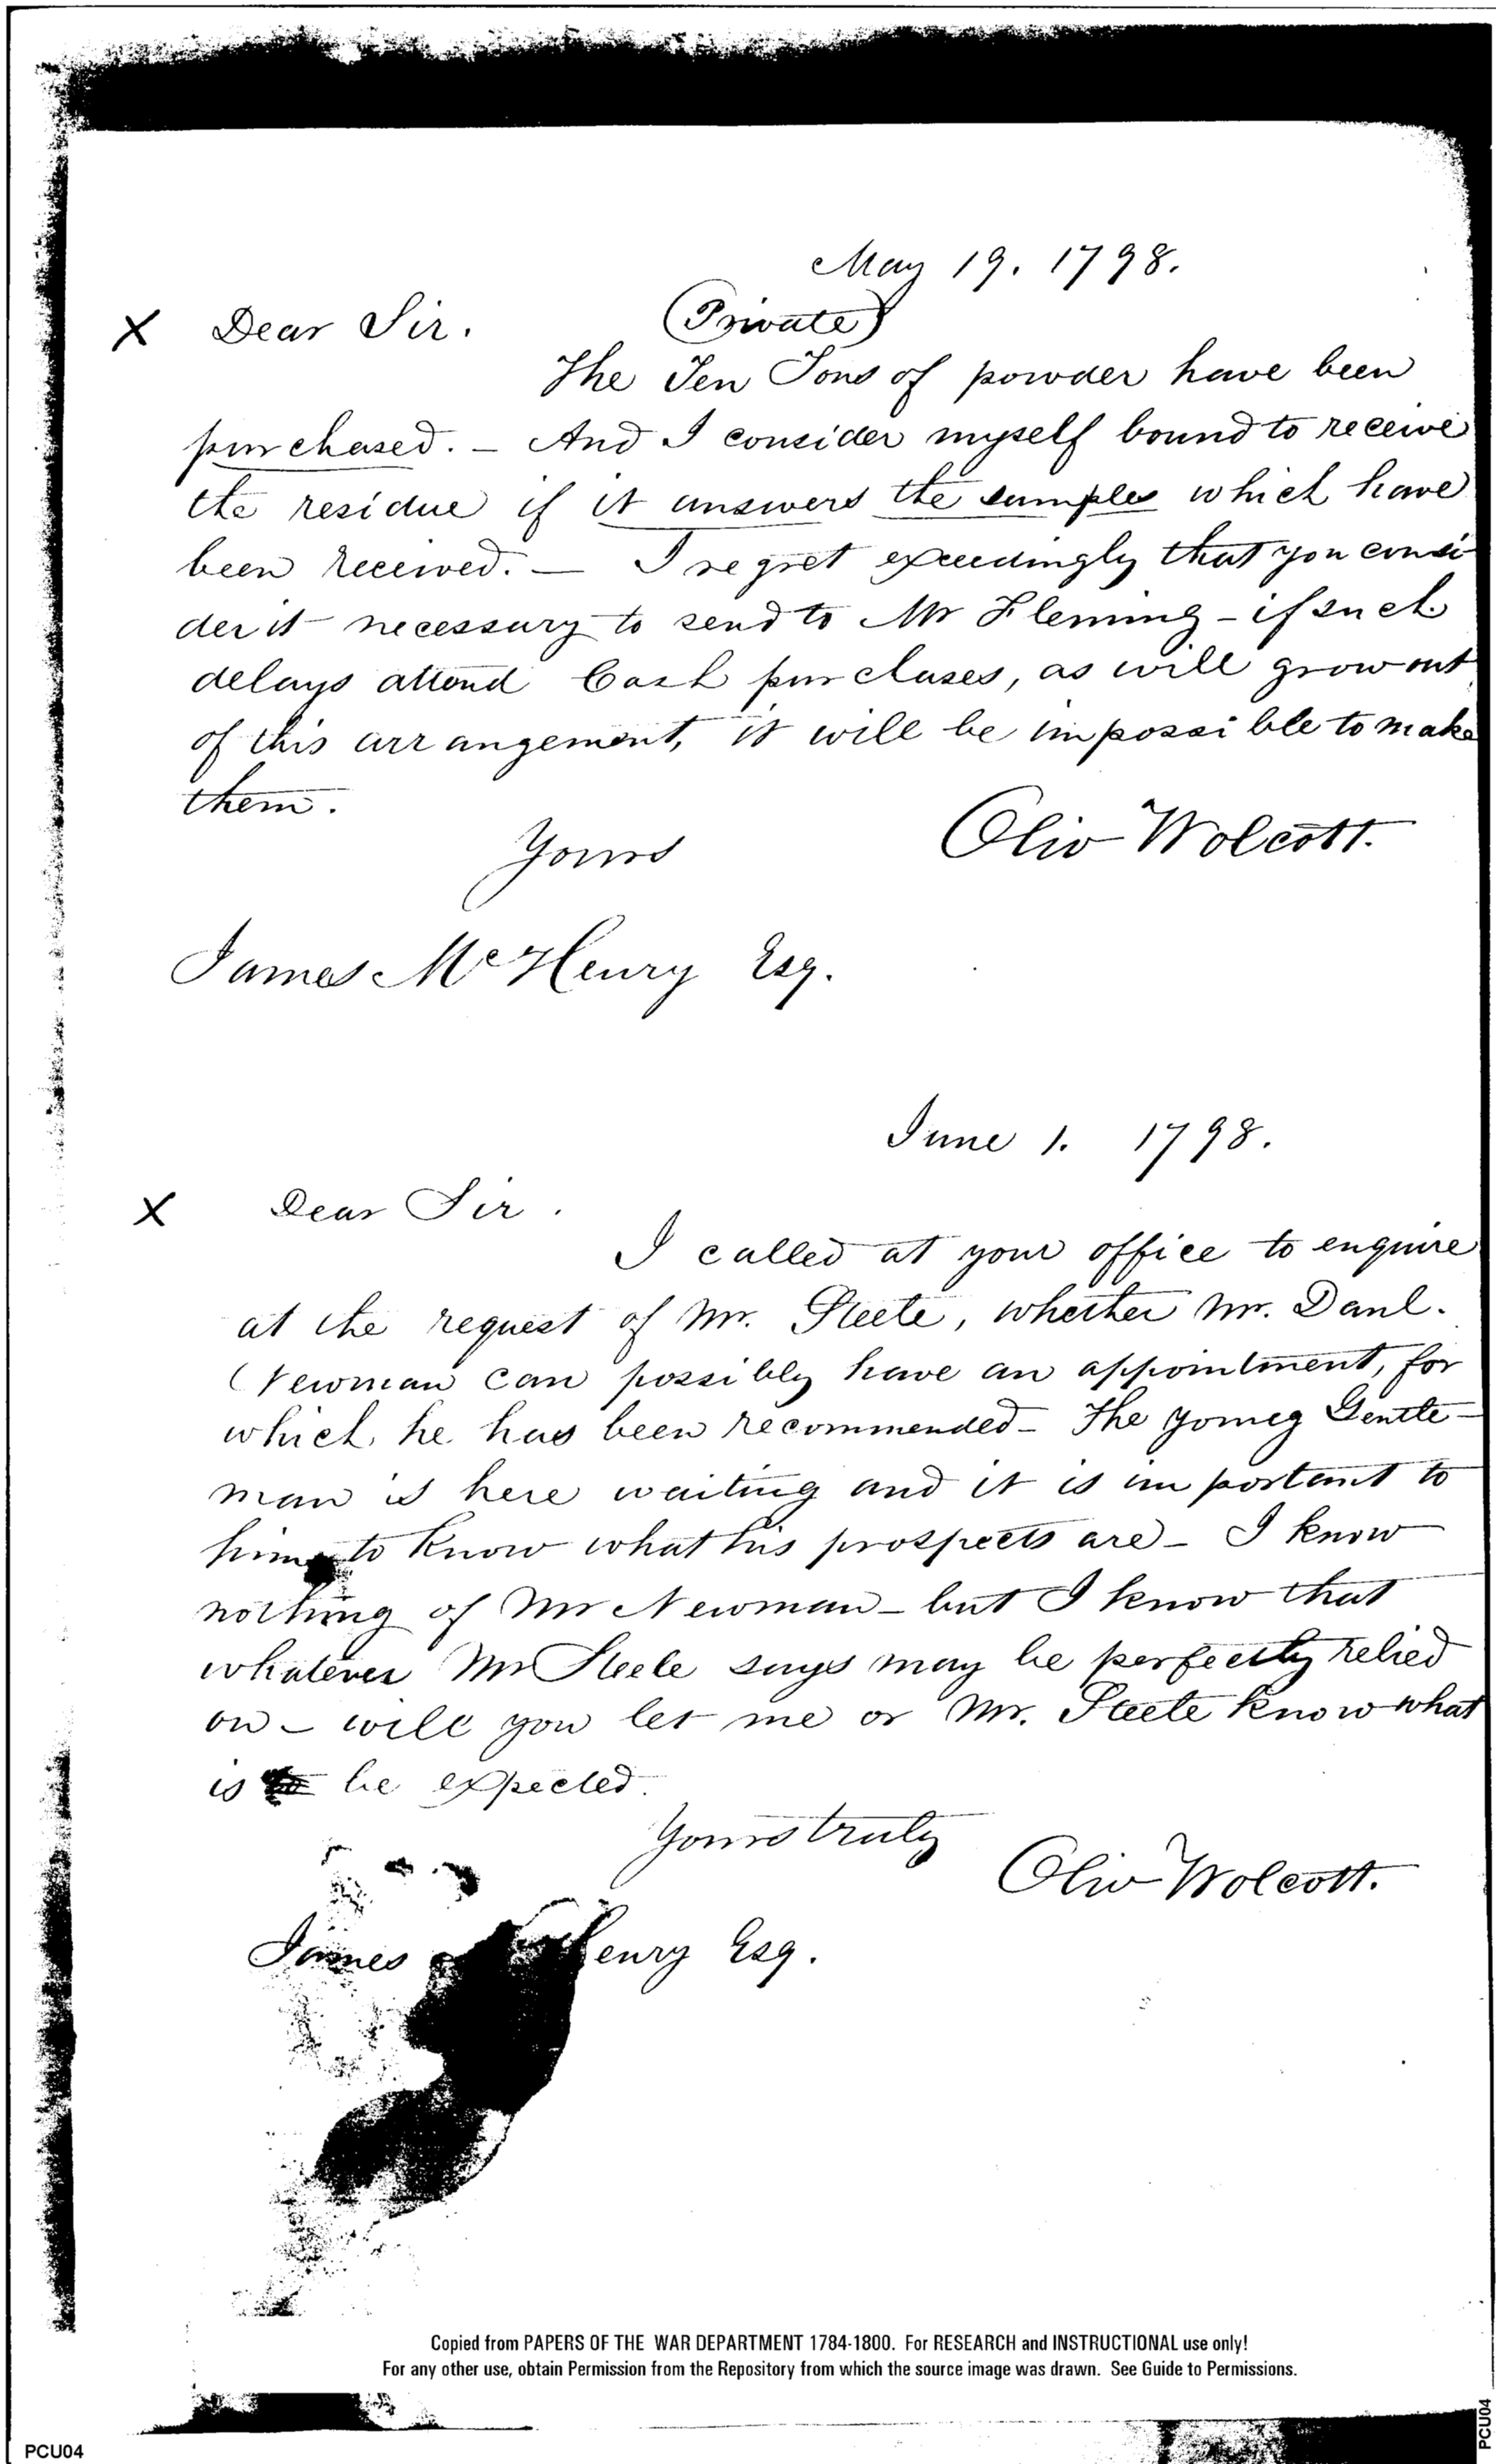 May 19. 1798.
X Dear Sir. (Private)
The Ten Tons of powder have been
purchased. - And I consider myself bound to receive
the residue if it answers the samples which have
been received. — I regret exceedingly that you consi
der it necessary to send to Mr Fleming - if such
delays attend Cash purchases, as will grow out
of this arrangement, it will be impossible to make
them.
Yours Oliv Wolcott.
James McHenry Esq.
June 1. 1798.
X Dear Sir.
I called at your office to enquire
at the request of Mr. Steele, whether Mr. Danl.
Newman can possibly have an appointment, for
which he has been recommended - The young Gentle-
man is here waiting and it is important to
him to know what his prospects are - I know
nothing of Mr Newman - but I know that
whatever Mr Steele says may be perfectly relied
on - will you let me or Mr. Steele know what
is to be expected.
Yours truly
Oliv Wolcott.
James Henry Esq.
Copied from PAPERS OF THE WAR DEPARTMENT 1784-1800. For RESEARCH and INSTRUCTIONAL use only!
For any other use, obtain Permission from the Repository from which the source image was drawn. See Guide to Permissions.
PCU04
PCU04